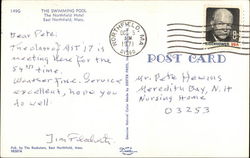 149G THE SWIMMING POOL
The Northfield Hotel
East Northfield, Mass.
Dear Pete,
The class of 17 is
meeting here for the
54th time.
Weather fine. Service
excellent, hope you
do well.
Pub. by The Bookstore, East Northfield, Mass.
NORTHFIELD, MA
1971
EISENHOWER USA
POST CARD
Mr. Pete
Meredith Bay, N H
Nursing Home
03253